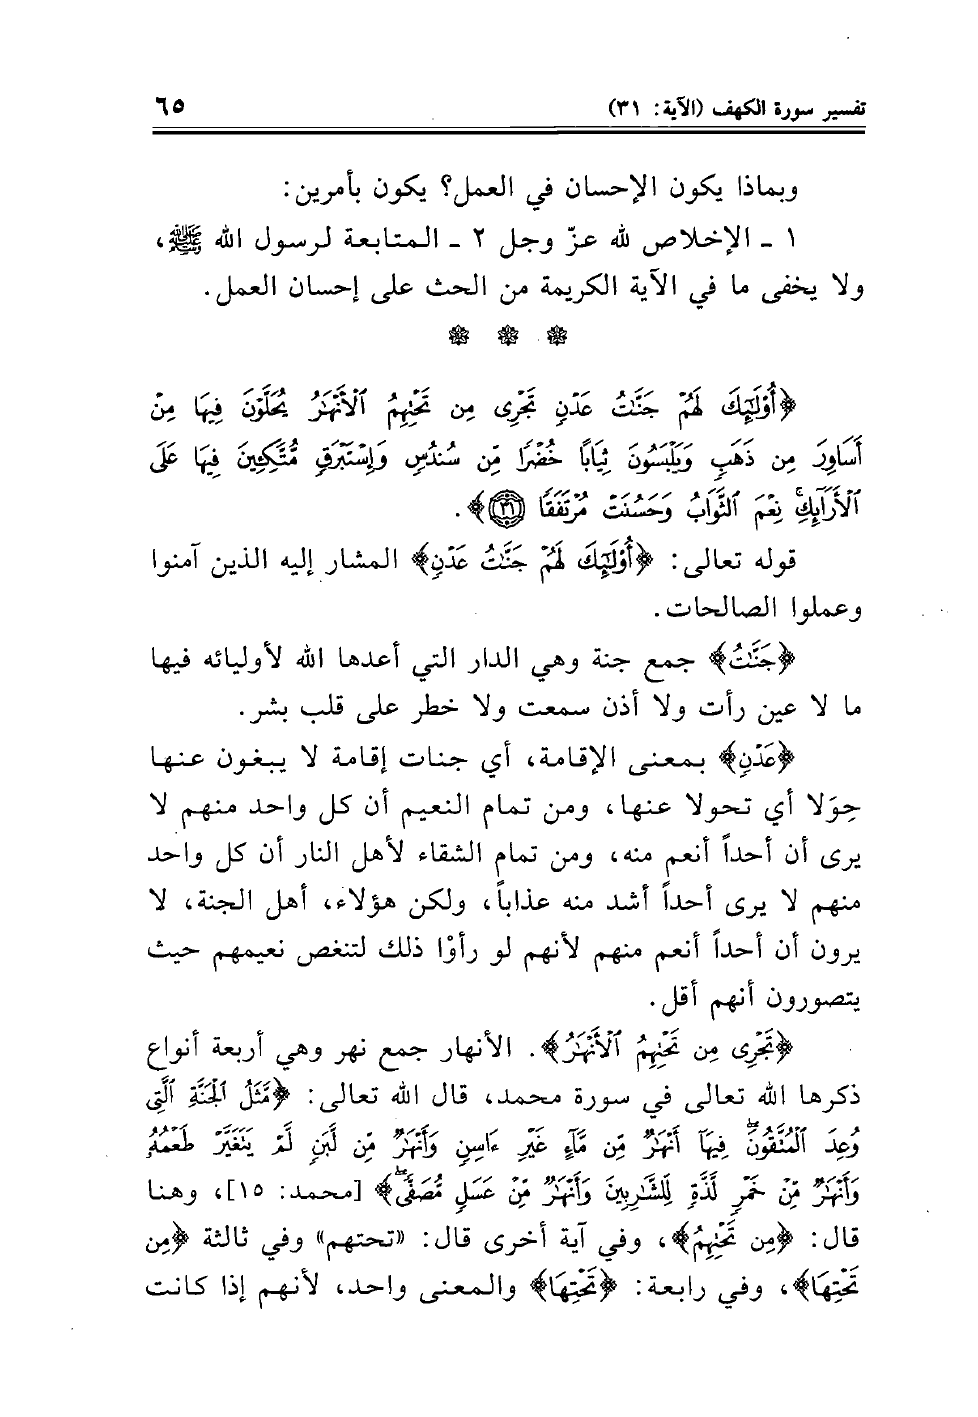 تفسير سورة الكهف (الآية: ٣١) ٦٥
وبماذا يكون الإحسان في العمل؟ يكون بأمرين:
١ ـ الإخلاص لله عزّ وجل ٢ ـ المتابعة لرسول الله ﷺ،
ولا يخفى ما في الآية الكريمة من الحث على إحسان العمل.
﴿أُوْلَٰٓئِكَ لَهُمْ جَنَّٰتُ عَدْنٍ تَجْرِى مِن تَحْتِهِمُ ٱلْأَنْهَٰرُ يُحَلَّوْنَ فِيهَا مِنْ
أَسَاوِرَ مِن ذَهَبٍ وَيَلْبَسُونَ ثِيَابًا خُضْرًا مِّن سُندُسٍ وَإِسْتَبْرَقٍ مُّتَّكِـِٔينَ فِيهَا عَلَى
ٱلْأَرَآئِكِۚ نِعْمَ ٱلثَّوَابُ وَحَسُنَتْ مُرْتَفَقًا ٣١﴾.
قوله تعالى: ﴿أُوْلَٰٓئِكَ لَهُمْ جَنَّٰتُ عَدْنٍ﴾ المشار إليه الذين آمنوا
وعملوا الصالحات.
﴿جَنَّٰتُ﴾ جمع جنة وهي الدار التي أعدها الله لأوليائه فيها
ما لا عين رأت ولا أذن سمعت ولا خطر على قلب بشر.
﴿عَدْنٍ﴾ بمعنى الإقامة، أي جنات إقامة لا يبغون عنها
حِوَلا أي تحولا عنها، ومن تمام النعيم أن كل واحد منهم لا
يرى أن أحداً أنعم منه، ومن تمام الشقاء لأهل النار أن كل واحد
منهم لا يرى أحداً أشد منه عذاباً، ولكن هؤلاء، أهل الجنة، لا
يرون أن أحداً أنعم منهم لأنهم لو رأوْا ذلك لتنغص نعيمهم حيث
يتصورون أنهم أقل.
﴿تَجْرِى مِن تَحْتِهِمُ ٱلْأَنْهَٰرُ﴾. الأنهار جمع نهر وهي أربعة أنواع
ذكرها الله تعالى في سورة محمد، قال الله تعالى: ﴿مَّثَلُ ٱلْجَنَّةِ ٱلَّتِى
وُعِدَ ٱلْمُتَّقُونَۖ فِيهَآ أَنْهَٰرٌ مِّن مَّآءٍ غَيْرِ ءَاسِنٍ وَأَنْهَٰرٌ مِّن لَّبَنٍ لَّمْ يَتَغَيَّرْ طَعْمُهُۥ
وَأَنْهَٰرٌ مِّنْ خَمْرٍ لَّذَّةٍ لِّلشَّٰرِبِينَ وَأَنْهَٰرٌ مِّنْ عَسَلٍ مُّصَفًّىۖ﴾ [محمد: ١٥]، وهنا
قال: ﴿مِن تَحْتِهِمُ﴾، وفي آية أخرى قال: «تحتهم» وفي ثالثة ﴿مِن
تَحْتِهَا﴾، وفي رابعة: ﴿تَحْتِهَا﴾ والمعنى واحد، لأنهم إذا كانت